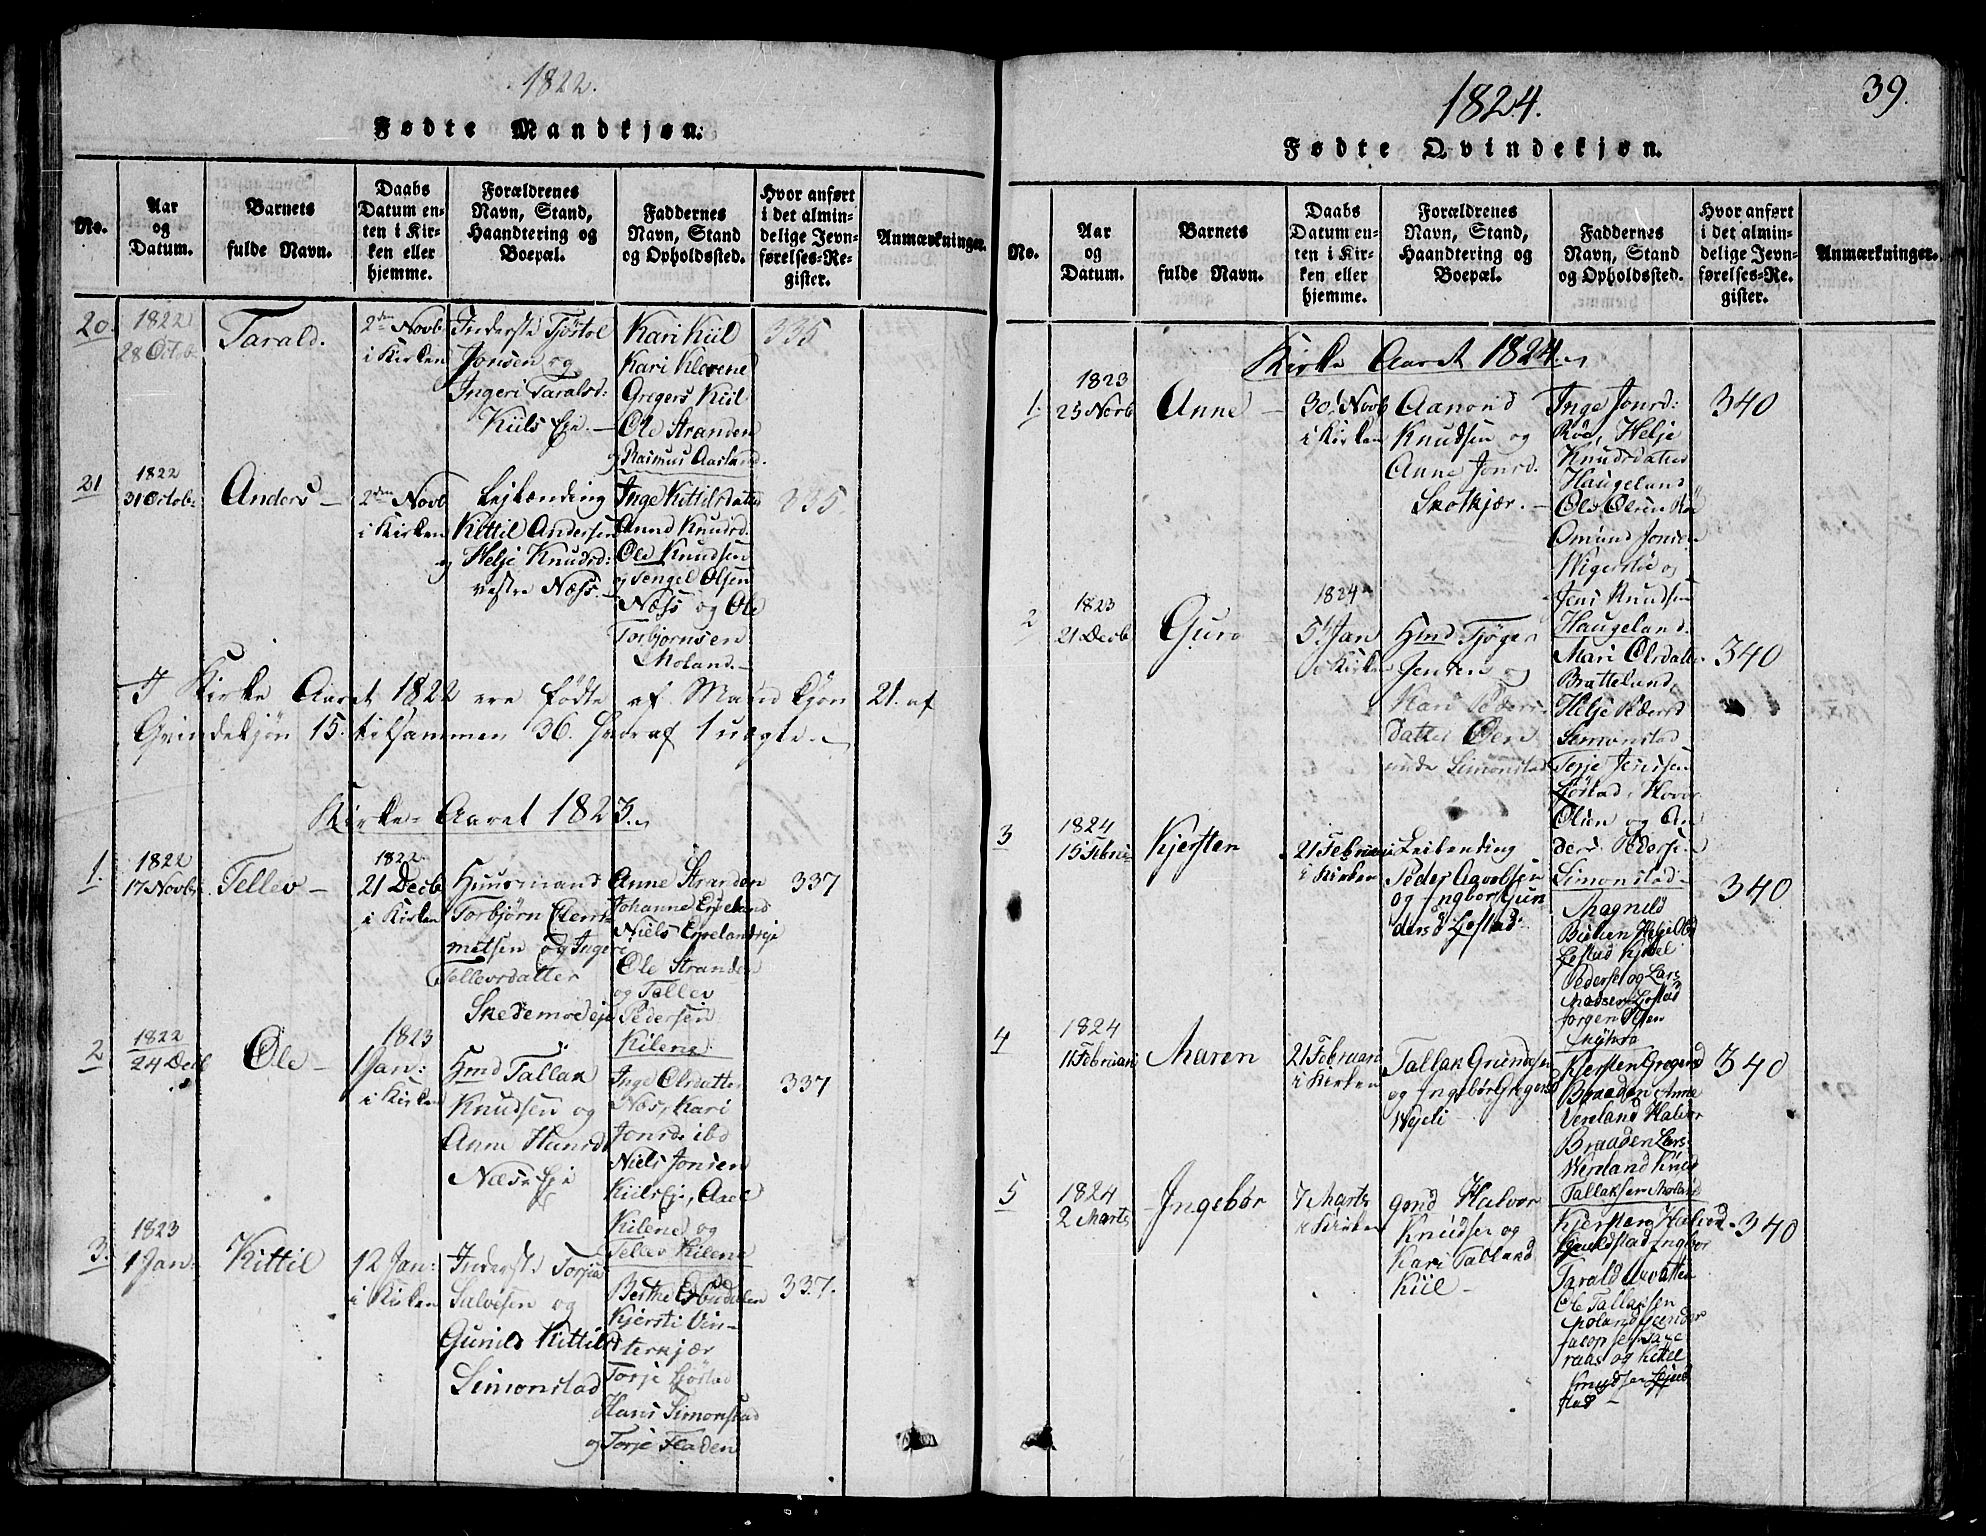 1822.
Fødte Mandkjøn.
No.
Aar
og
Datum.
Barnets
fulde Navn.
Daabs
Datum en-
ten i Kir-
ken eller
hjemme.
Forældrenes
Navn, Stand,
Haandtering og
Boepæl.
Faddernes
Navn, Stand
og Opholdssted.
Hvor anført
i det almin-
delige Jevn-
førelses-Re-
gister.
Anmærkninger.
20.
1822
28 Octob
Tarald.
2den Novb
i Kirken
Inderste Tjøstol
Jonsen og
Ingeri Taralsd:
Kiils Eje.
Kari Kiil
Kari Klevene
Gregers Kiil
Ole Stranden
og Rasmus Aasland.
335
21
1822
31 Octob:
Anders
2den Novb
i Kirken
Lejlænding
Kittil Andersen
og Helje Knudsd:
vestre Næss.
Inge Kittilsdatter
Anne Knudsd.
Ole Knudsen
og Tengel Olsen
Næss og Ole
Torbjørnsen
Moland.
335.
I Kirke Aaret 1822 ere fødte af Mandkjøn 21. af
Qvindekjøn 15. tilsammen 36. hvoraf 1 uægte.
Kirke-Aaret 1823.
1.
1822
17 Novbr.
Tellev
1822
21 Decb
i Kirken
Huusmand
Torbjørn Clem-
metsen og Ingeri
Tellevsdatter
Skedemoe eje
Anne Stranden
Johanne Eppeland
Niels Eppelandseje
Ole Stranden
og Tellev
Pedersen
Kilene
337
2
1822
24 Decb
Ole
1823
1 Jan:
i Kirken
Hmd Tallak
Knudsen og
Anne Hansd
Næss Eje
Inge Olsdatter
Næs, Kari
Jonsd. ibd
Niels Jonsen
Kiils Eje, Axel
Kilene og
Tellev Kilene
337
3.
1823
1 Jan:
Kittil
12 Jan:
i Kirken
Inderste Torjus
Salvesen og
Gunild Kittilsd
Simonstad
Berthe Espedalen
Kjersti Vin-
terkjær
Torje Ljøstad
Hans Simonstad
og Torje Fladen
337.
39.
1824.
Fødte Qvindekjøn.
No.
Aar
og
Datum.
Barnets
fulde Navn.
Daabs
Datum en-
ten i Kir-
ken eller
hjemme.
Forældrenes
Navn, Stand,
Haandtering og
Boepæl.
Faddernes
Navn, Stand
og Opholdssted.
Hvor anført
i det almin-
delige Jevn-
førelses-Re-
gister.
Anmærkninger.
Kirke Aaret 1824.
1.
1823
25 Novb
Anne
30. Novb
i Kirken
Aanond
Knudsen og
Anne Jonsd.
Skotkjær.
Inge Jonsd:
Röe, Helje
Knudsdatter
Haugeland
Ole Olsen Rö
Omund Jonsen
Wigerstöe og
Jens Knudsen
Haugeland.
340
2
1823
21 Decb
Guro
1824
5te Jan
i Kirken
Hmd Tjøger
Jensen og
Kari Peders-
datter Øen
under Simonstad
Mari Olsdatter
Bratteland,
Helje Pedersd
Simonstad
Terje Jensen
Ljøstad, Havor
Olsen og An
ders Pedersen
Simonstad
340
3
1824
15 Februar
Kjersten
21 Februari
i Kirken
Leilending
Peder Aavolsen
og Ingbor Gun
dersd Lofstad
Magnild
Bieen Helje Ols
Lofstad Kjetel
Pederset og Lars
Madsen Lofstad
Jørgen Olsen
340
4
1824
11 Februari
Maren
21 Februari
i Kirken
Tallak Grundesen
og Ingebør Gregersd
Wejeli
Kjersten Gregersd
Braaden Anne
Vereland Halvor
Braaden Lars
Vereland Knud
Tallaksen Moland
340
5
1824
2 Marts
Ingebør
7 Marts
i Kirken
gmd Halvor
Knudsen og
Kari Tallaksd
Kiil
Kjersten Halvorsd
Ingbor
Tarald Uvatten
Ole Tallaksen
Moland Gunder
Jacopsen
raas og Kittel
Knudsen
stad
340